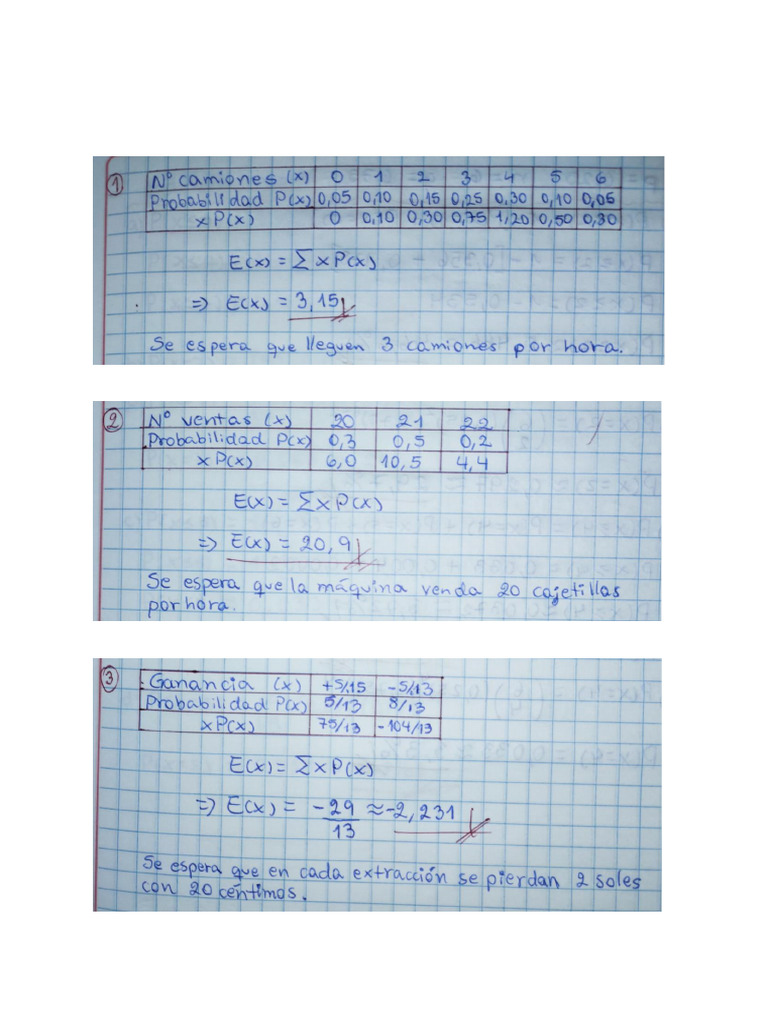 ① Nº camiones (x) 0 1 2 3 4 5 6
Probabilidad P(x) 0,05 0,10 0,15 0,25 0,30 0,10 0,05
xP(x) 0 0,10 0,30 0,75 1,20 0,50 0,30
E(x) = Σ xP(x)
⇒ E(x) = 3,15
Se espera que lleguen 3 camiones por hora.
② Nº ventas (x) 20 21 22
Probabilidad P(x) 0,3 0,5 0,2
xP(x) 6,0 10,5 4,4
E(x) = Σ xP(x)
⇒ E(x) = 20,9
Se espera que la máquina venda 20 cajetillas
por hora.
③ Ganancia (x) +S/.15 -S/.13
Probabilidad P(x) 5/13 8/13
xP(x) 75/13 -104/13
E(x) = Σ xP(x)
⇒ E(x) = -29/13 ≈ -2,231
Se espera que en cada extracción se pierdan 2 soles
con 20 céntimos.